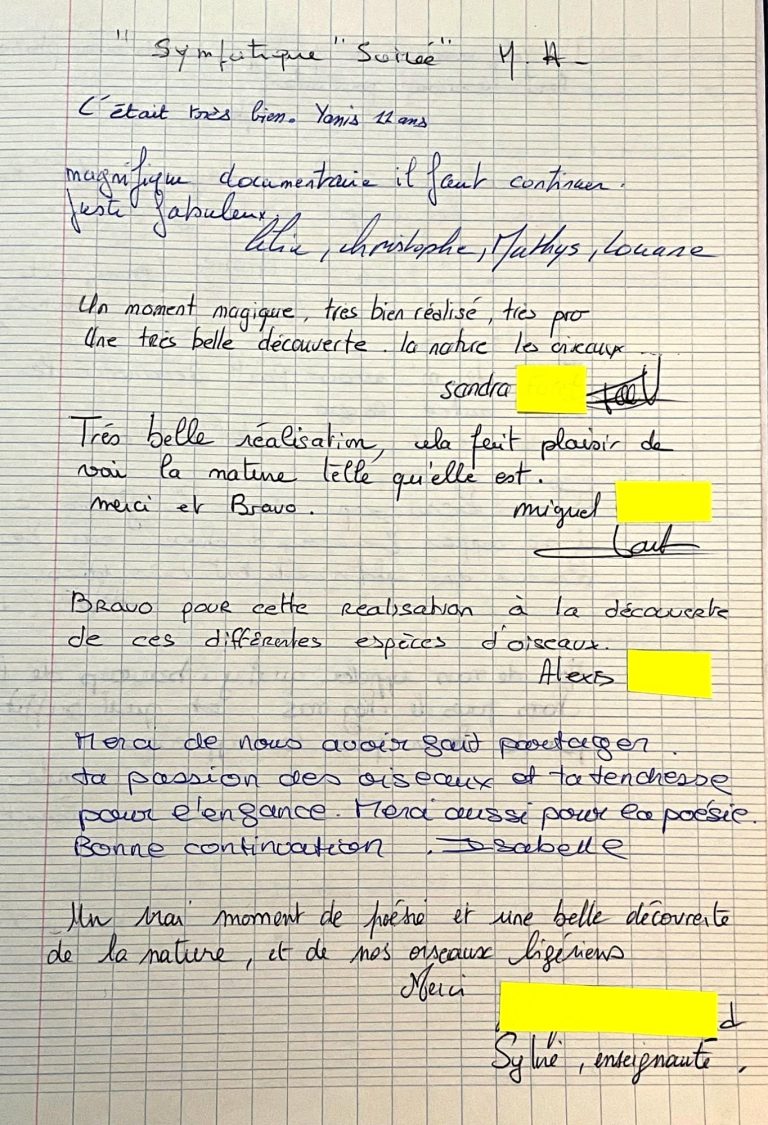 " Symfatique " Soireé " M. A -
C'était très bien. Yanis 11 ans
magnifique documentaire il faut continuer.
Juste fabuleux.
Célia, christophe, Mathys, Louane
Un moment magique, très bien réalisé, très pro
Une très belle découverte. la nature les oiseaux ...
sandra
Très belle réalisation, cela fait plaisir de
voir la nature telle qu'elle est.
merci et Bravo. miguel
BRAVO pour cette realisation à la découverte
de ces différentes espèces d'oiseaux.
Alexis
Merci de nous avoir fait partager
ta passion des oiseaux et ta tendresse
pour l'enfance. Merci aussi pour la poésie.
Bonne continuation. Isabelle
Un vrai moment de poésie et une belle découverte
de la nature, et de nos oiseaux ligériens
Merci
d
Sylvie, enseignante.